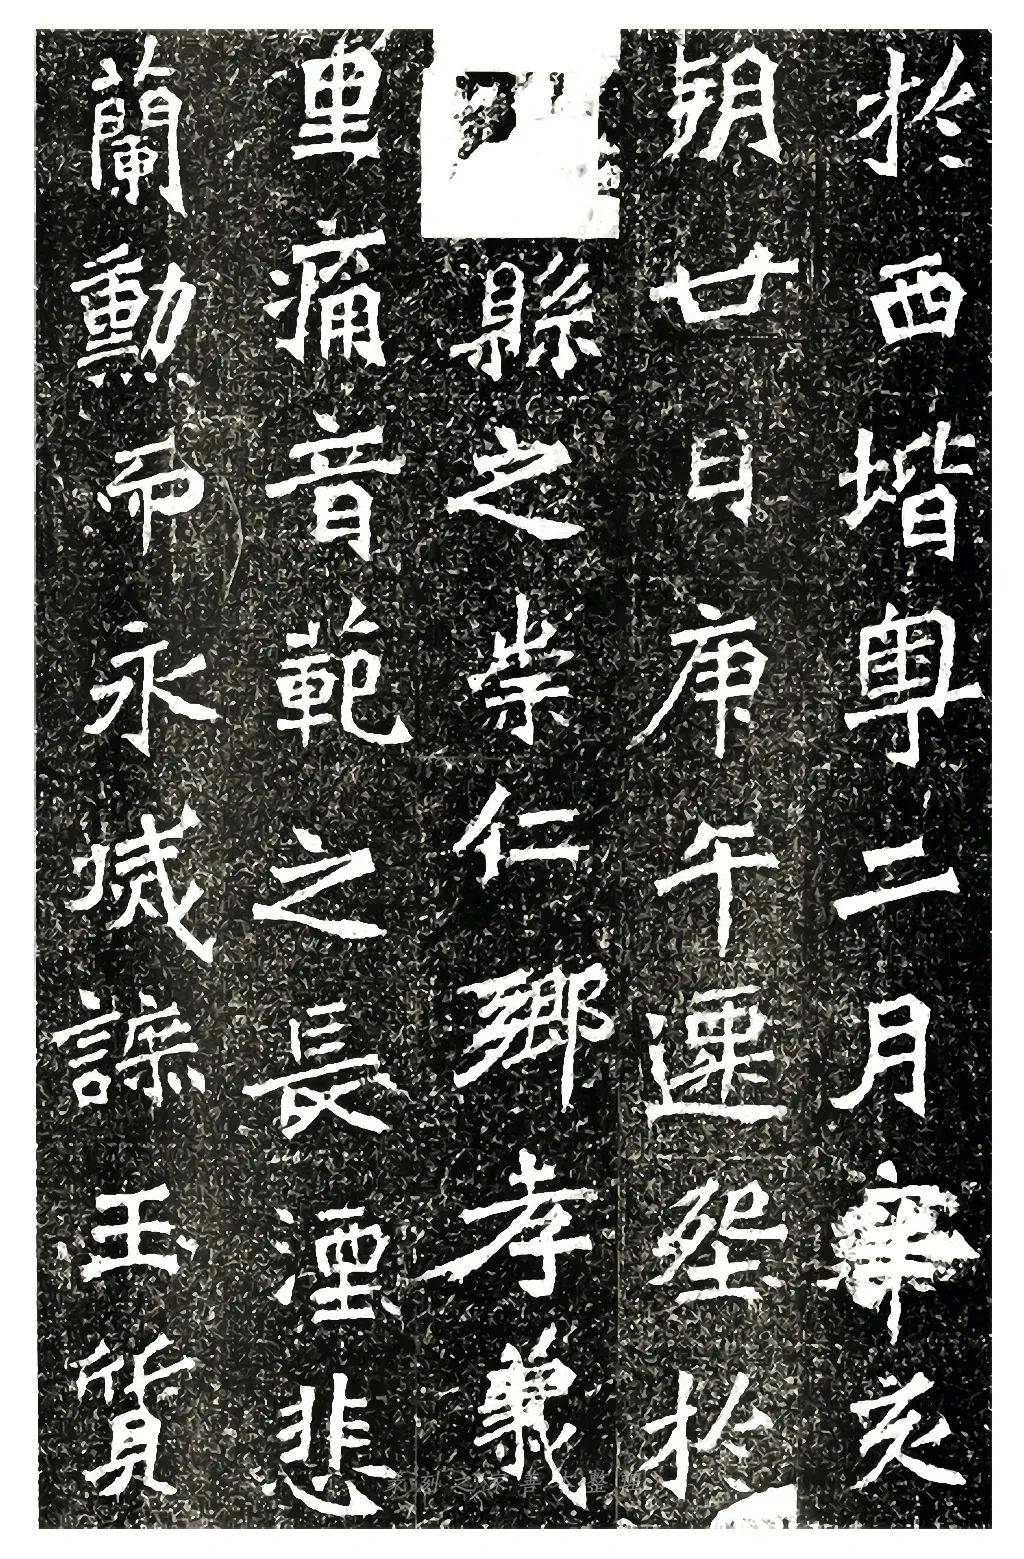 於西堦粤二月辛亥
朔廿日庚午遷塟於
縣之崇仁鄉孝義
里痛音範之長湮悲
蘭勳而永滅謀玉質